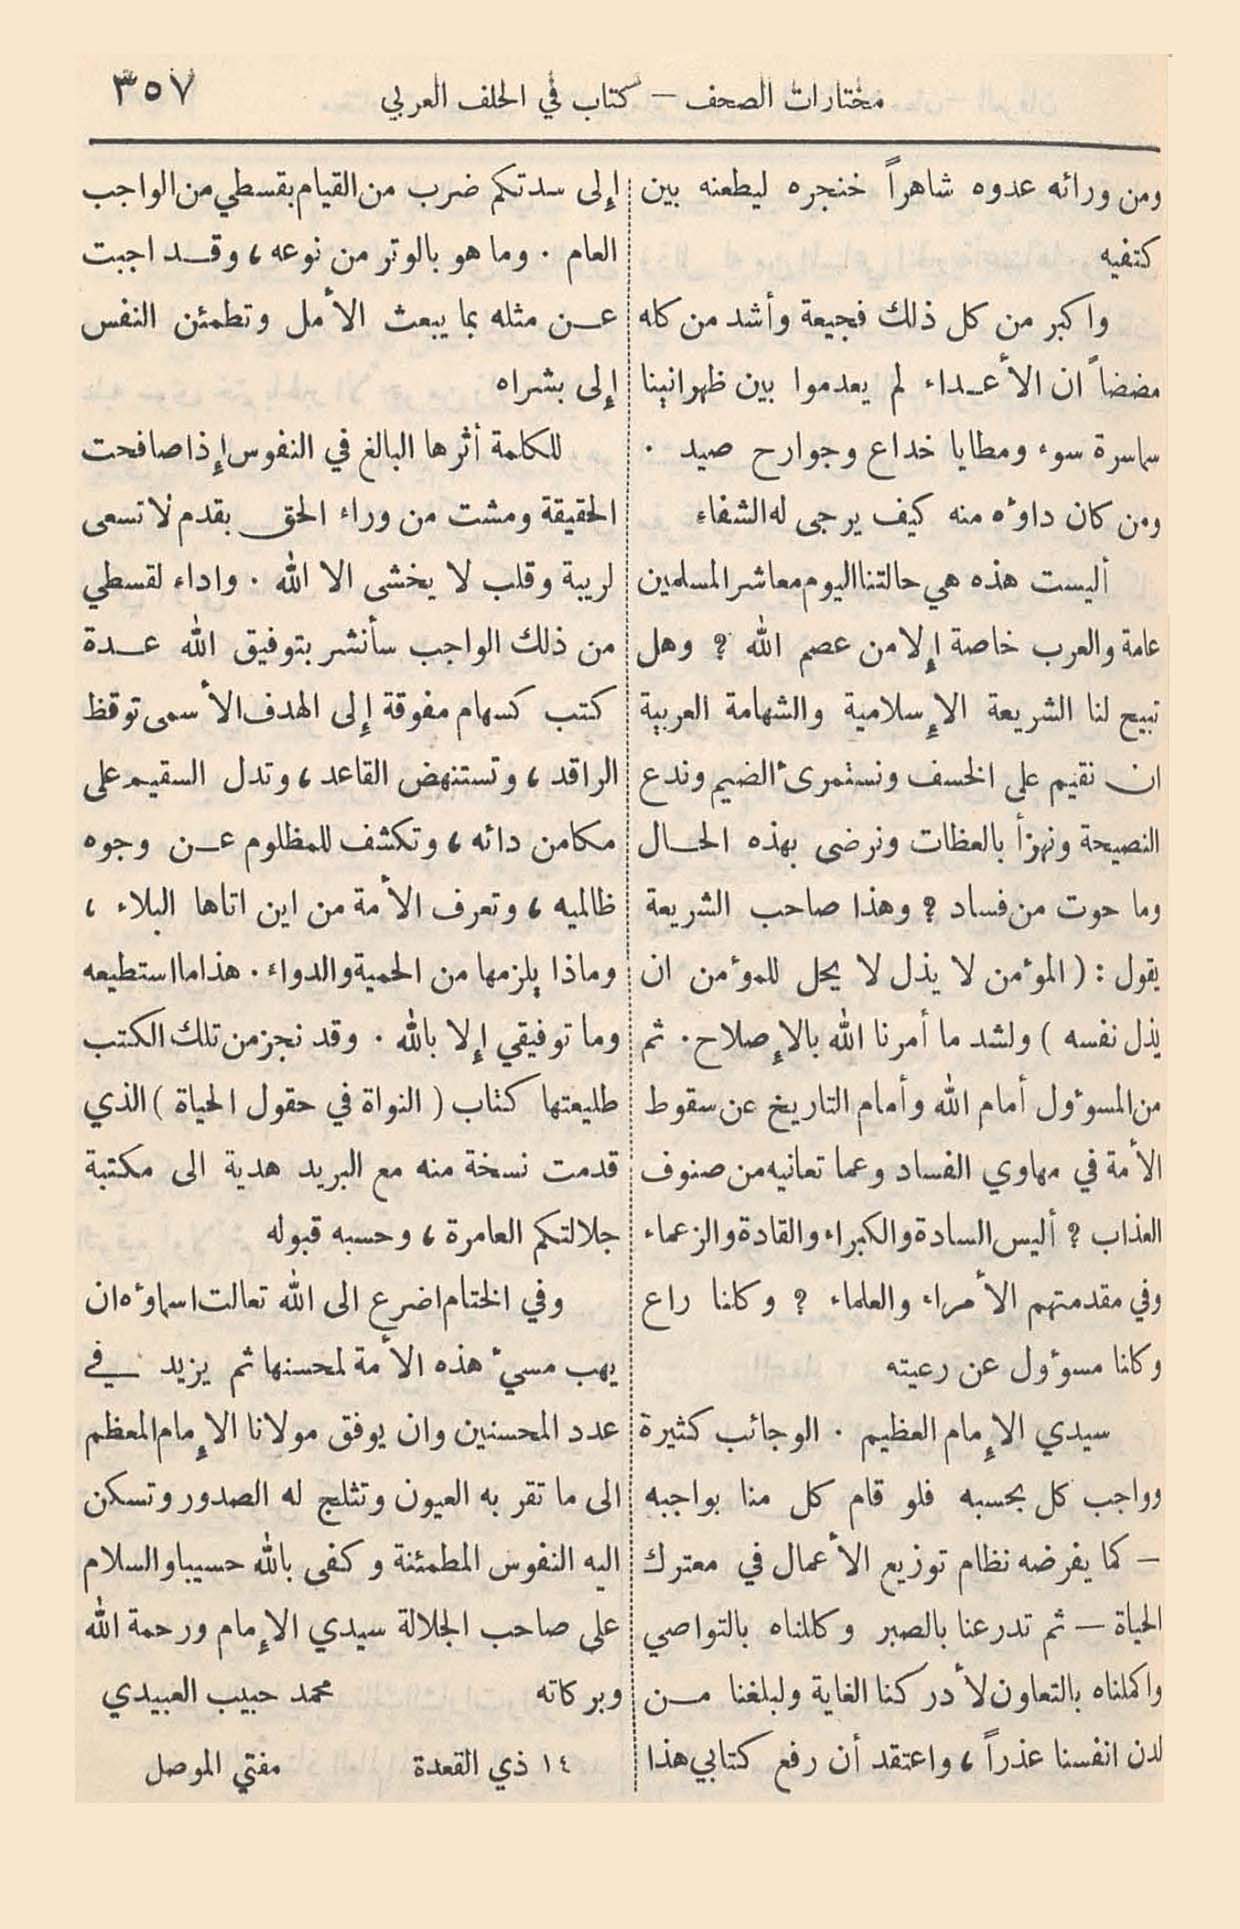 مختارات الصحف – كتاب في الحلف العربي
٣٥٧
ومن ورائه عدوه شاهراً خنجره ليطعنه بين
كتفيه
واكبر من كل ذلك فجيعة وأشد من كله
مضضاً ان الأعداء لم يعدموا بين ظهرانينا
سماسرة سوء ومطايا خداع وجوارح صيد .
ومن كان داؤه منه كيف يرجى له الشفاء
أليست هذه هي حالتنا اليوم معاشر المسلمين
عامة والعرب خاصة إلا من عصم الله ? وهل
تبيح لنا الشريعة الإسلامية والشهامة العربية
ان نقيم على الخسف ونستمرئ الضيم وندع
النصيحة ونهزأ بالعظات ونرضى بهذه الحال
وما حوت من فساد ? وهذا صاحب الشريعة
يقول : ( المؤمن لا يذل لا يحل للمؤمن ان
يذل نفسه ) ولشد ما أمرنا الله بالإصلاح . ثم
من المسوؤل أمام الله وأمام التاريخ عن سقوط
الأمة في مهاوي الفساد وعما تعانيه من صنوف
العذاب ? أليس السادة والكبراء والقادة والزعماء
وفي مقدمتهم الأمراء والعلماء ? وكلنا راع
وكلنا مسوؤل عن رعيته
سيدي الإمام العظيم . الوجائب كثيرة
وواجب كل بحسبه فلو قام كل منا بواجبه
– كما يفرضه نظام توزيع الأعمال في معترك
الحياة – ثم تدرعنا بالصبر وكللناه بالتواصي
واكملناه بالتعاون لأدركنا الغاية ولبلغنا من
لدن انفسنا عذراً ، واعتقد أن رفع كتابي هذا
إلى سدتكم ضرب من القيام بقسطي من الواجب
العام . وما هو بالوتر من نوعه ، وقد اجبت
عن مثله بما يبعث الأمل وتطمئن النفس
إلى بشراه
للكلمة أثرها البالغ في النفوس إذا صافحت
الحقيقة ومشت من وراء الحق بقدم لا تسعى
لريبة وقلب لا يخشى الا الله . واداء لقسطي
من ذلك الواجب سأنشر بتوفيق الله عدة
كتب كسهام مفوقة إلى الهدف الأسمى توقظ
الراقد ، وتستنهض القاعد ، وتدل السقيم على
مكامن دائه ، وتكشف للمظلوم عن وجوه
ظالميه ، وتعرف الأمة من اين اتاها البلاء ،
وماذا يلزمها من الحمية والدواء . هذا ما استطيعه
وما توفيقي إلا بالله . وقد نجز من تلك الكتب
طليعتها كتاب ( النواة في حقول الحياة ) الذي
قدمت نسخة منه مع البريد هدية الى مكتبة
جلالتكم العامرة ، وحسبه قبوله
وفي الختام اضرع الى الله تعالت اسماؤه ان
يهب مسيئ هذه الأمة لمحسنها ثم يزيد في
عدد المحسنين وان يوفق مولانا الإمام المعظم
الى ما تقر به العيون وتثلج له الصدور وتسكن
اليه النفوس المطمئنة وكفى بالله حسيبا والسلام
على صاحب الجلالة سيدي الإمام ورحمة الله
وبركاته محمد حبيب العبيدي
١٤ ذي القعدة مفتي الموصل